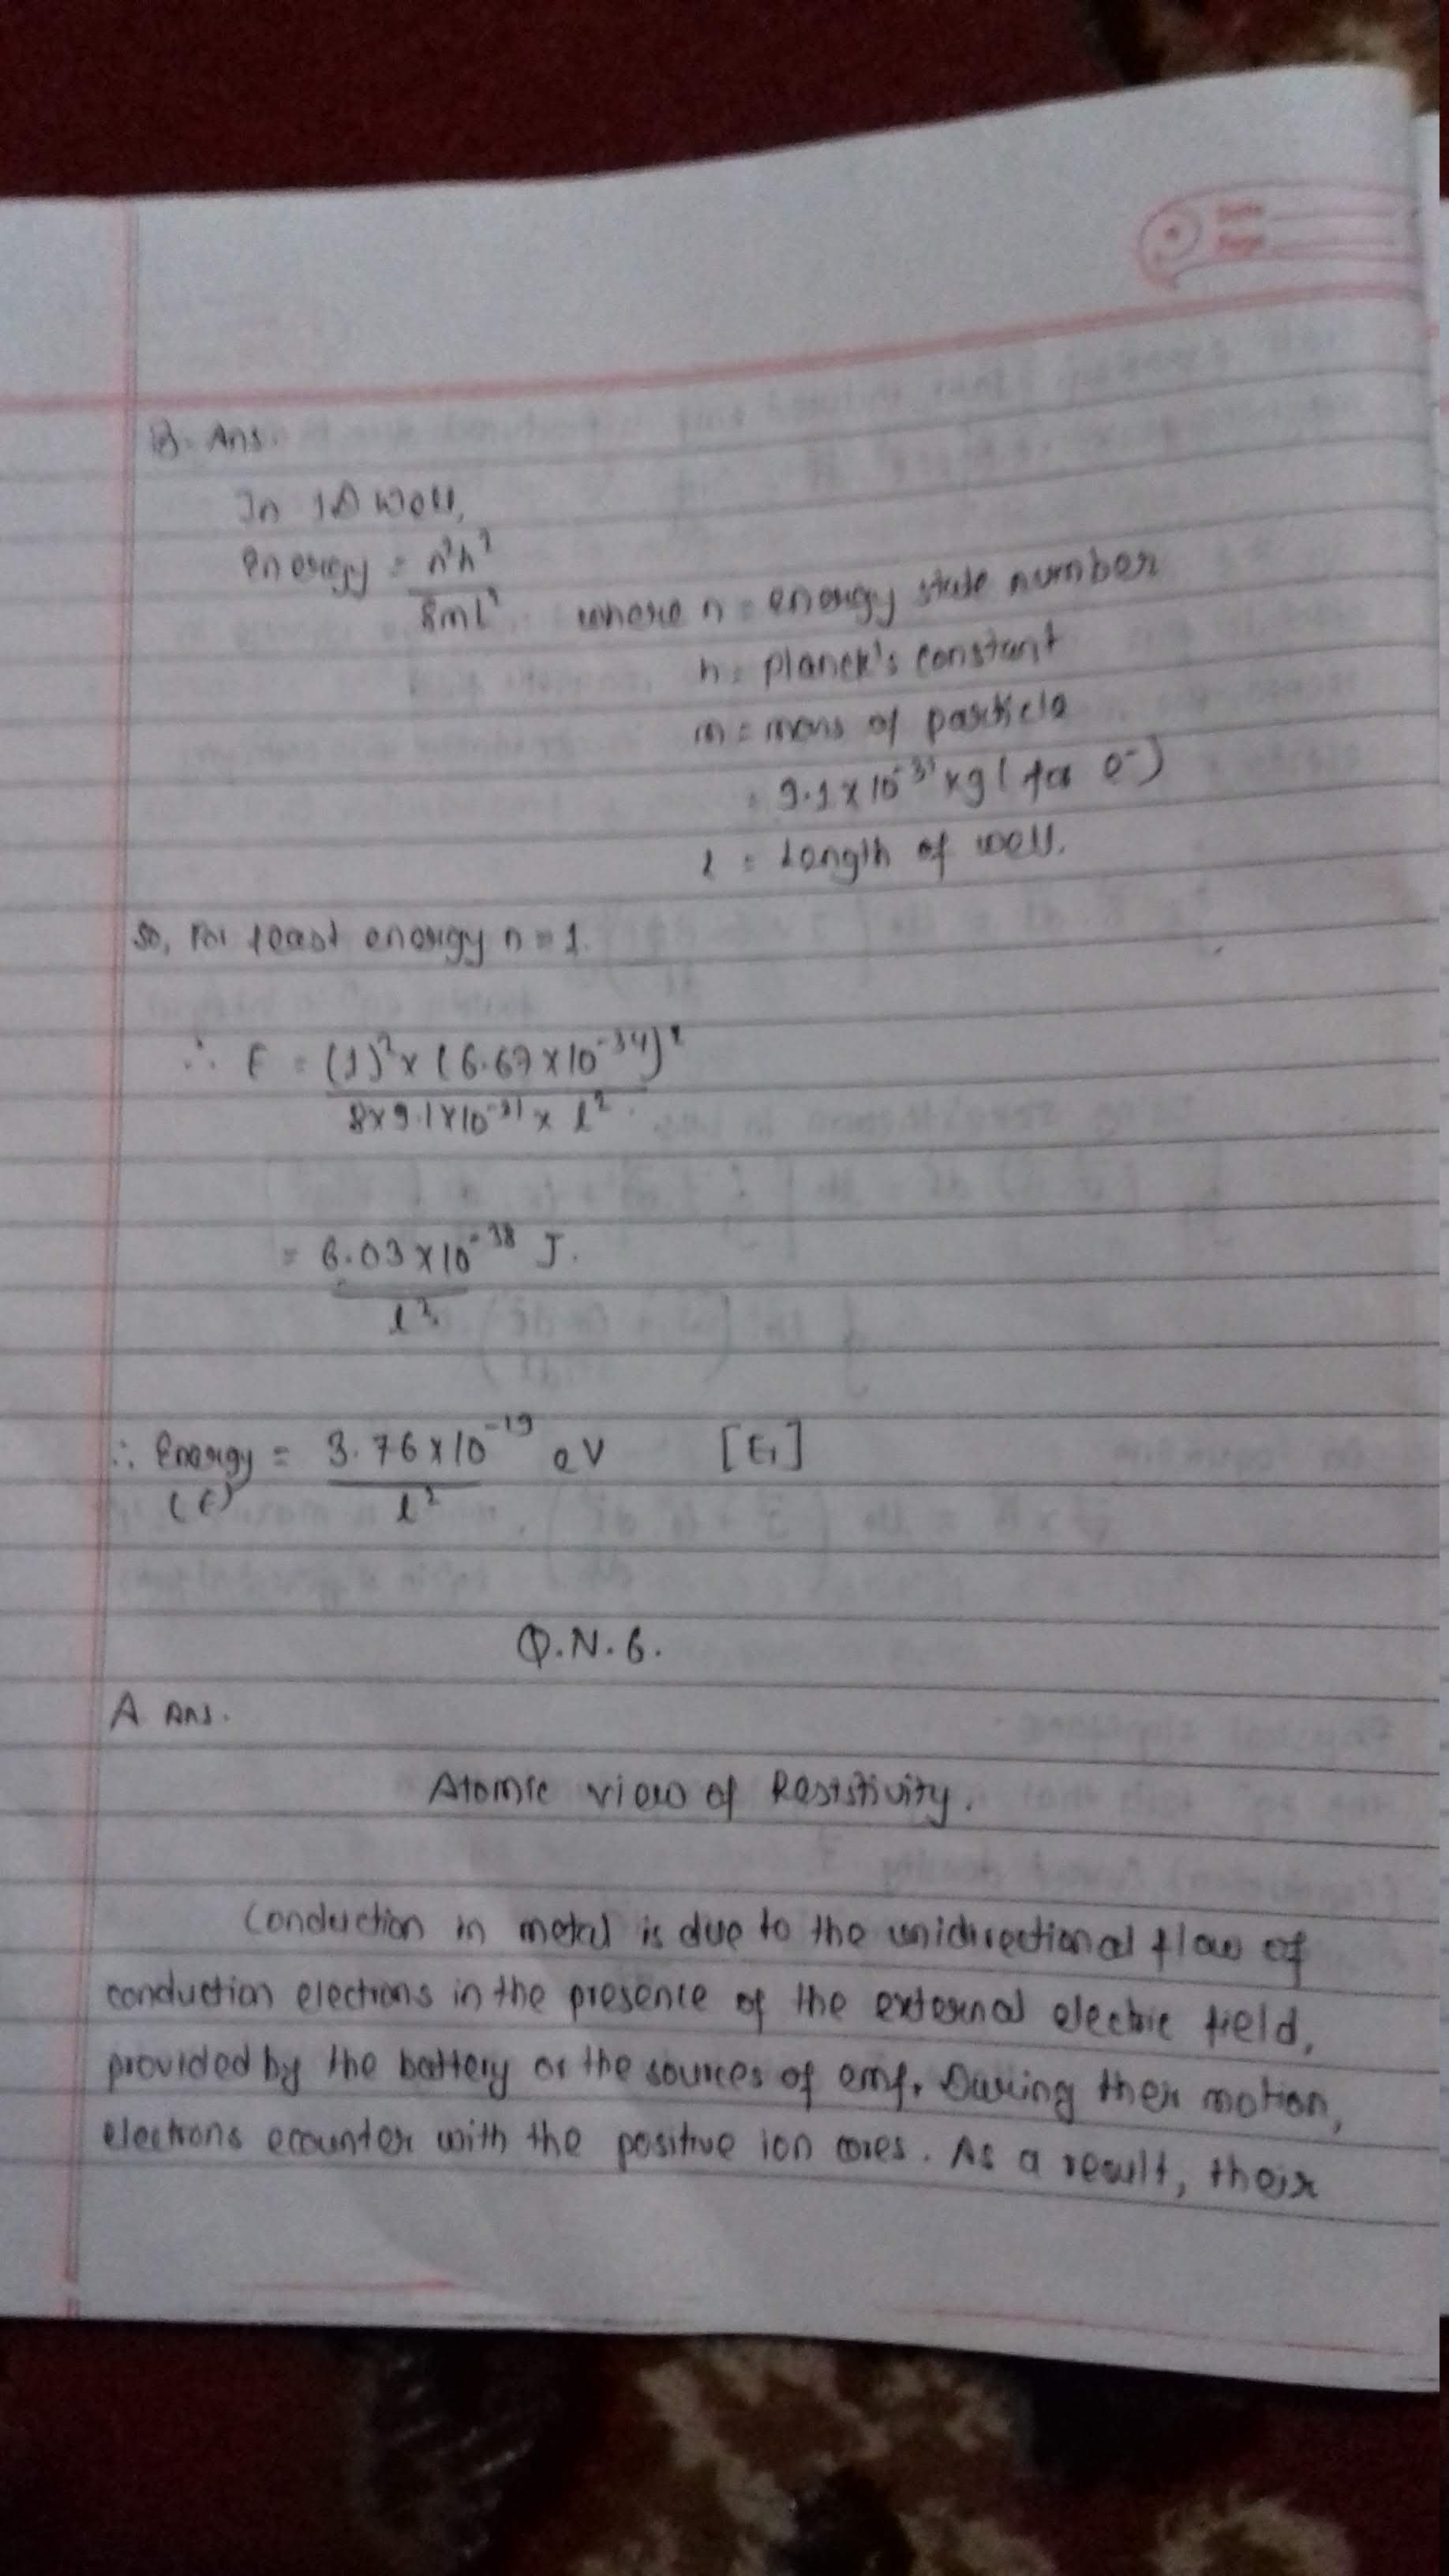 B. Ans.
In 1D Well,
energy = n²h²/8ml² where n = energy state number
h = planck's constant
m = mass of particle
= 9.1 x 10⁻³¹ kg (for e⁻)
l = Length of well.
So, For least energy n = 1.
∴ E = (1)² x (6.67 x 10⁻³⁴)² / 8 x 9.1 x 10⁻³¹ x l²
= 6.03 x 10⁻³⁸ / l² J.
∴ Energy (E) = 3.76 x 10⁻¹⁹ / l² eV [E₁]
Q.N.6.
A Ans.
Atomic view of Resistivity.
Conduction in metal is due to the unidirectional flow of
conduction electrons in the presence of the external electric field,
provided by the battery or the sources of emf. During their motion,
electrons ecounter with the positive ion cores. As a result, their